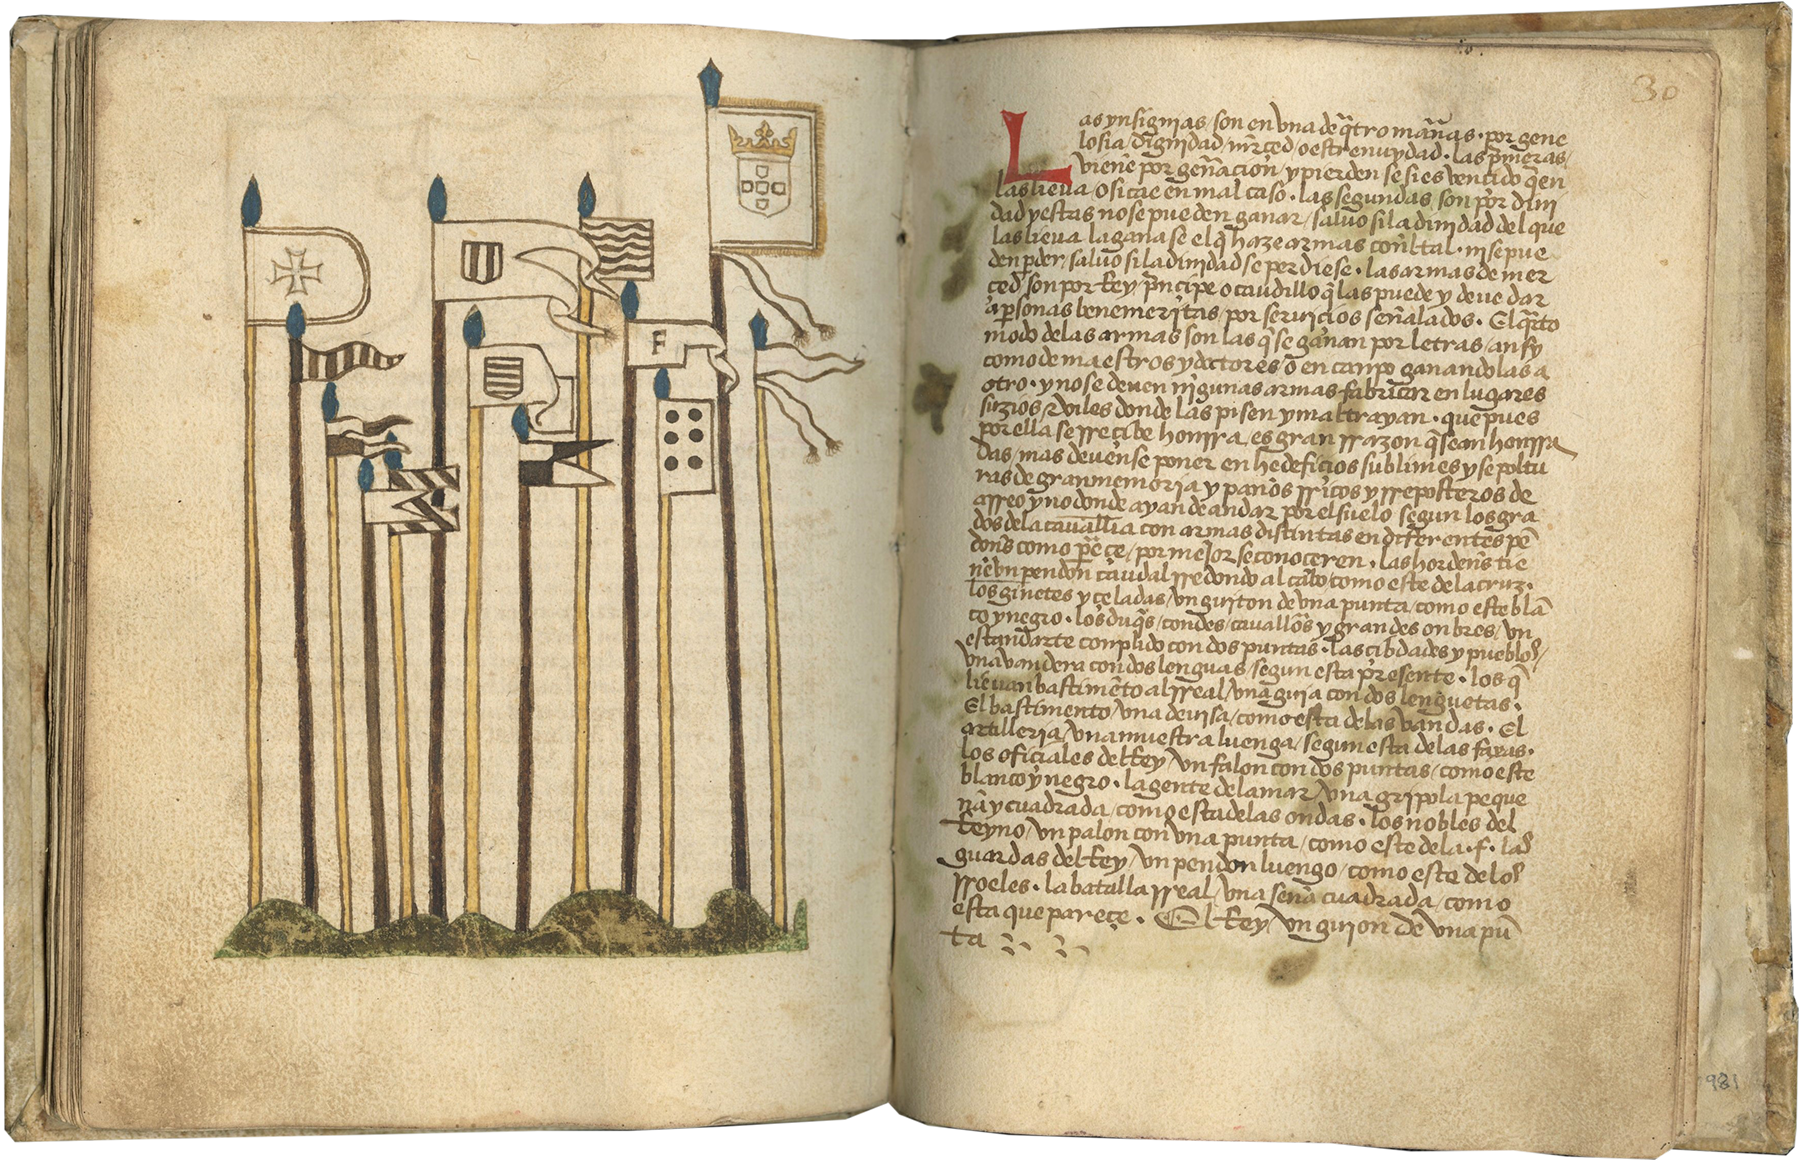 F
30
Las ynsignias / son en vna de q̃tro mãñas · por gene
losia / dignidad / mr̃ced / o estrenuydad · las p̃meras /
vienẽ por gen̄acion / y pierden se si es vencido q̃en
las lieua / o si cae en mal caso · las segundas son por dini
dad y estas no se pueden ganar / saluo si la dinidad del que
las lieua la gana se el q̃ haze armas con̄l tal · ni se pue
den p̱der / saluo si la dinidad se perdiese · las armas de mer
ced son por Rey / p̃ncipe o caudillo q̃ las puede y deue dar
a p̱sonas benemeritas / por seruicios señalados · El q̃rto
modo de las armas son las q̃ se ganan por letras / ansy
como de maestros y doctores / o en canpo ganandolas a
otro · y no se deuen nigunas armas fabricar en lugares
suzios & viles donde las pisen y maltrayan · que pues
por ella se rreçibe honrra es gran rrazon q̃ sean honrra
das / mas deuense poner en hedeficios sublimes y sepoltu
ras de gran memoria / y paños rricos y rreposteros de
arreo y no donde ayan de andar por el suelo segun los gra
dos de la cauall̃ia con armas distintas en diferentes pē
don̄s como p̱eçe / por mejor se conoceren · las horden̄s tie
nē vn pendon caudal rredondo al cabo / como este de la cruz ·
los ginetes y çeladas / vn guiton de vna punta / como este blã
co y negro · los duq̃s / condes / cauallõs y grandes onbres / vn
estandarte conplido con dos puntas · las cibdades y pueblos /
vna vandera con dos lenguas / segun esta presente · los q̃
lieuan bastimẽto al rreal / vna guia con dos lenguetas ·
El bastimento / vna deuisa / como esta de las vandas · El
artilleria / vna muestra luenga / segun esta de las faxas ·
los oficiales del Rey / vn falon con dos puntas / como este
blanco y negro · la gente de la mar / vna gripola peque
ña y cuadrada / como esta de las ondas · los nobles del
Reyno / vn palon con vna punta / como este de la · f · las
guardas del Rey / vn pendon luengo / como este de los
rroeles · la batalla rreal / vna seña cuadrada / como
esta que pareçe · El Rey / vn guion de vna pũ
ta
981